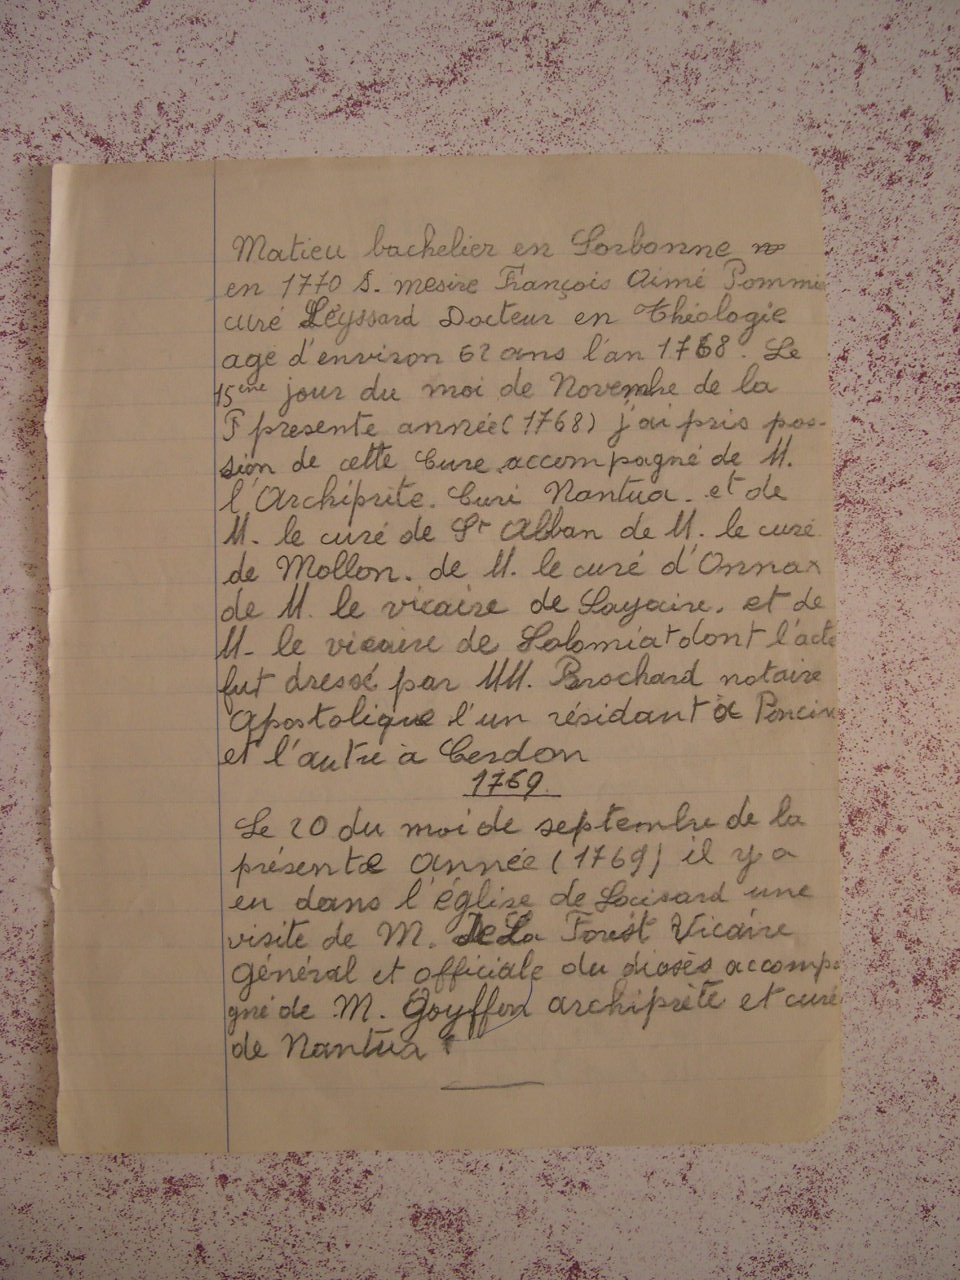 Matieu bachelier en Sorbonne
en 1770 S. mesire François Aimé Pommi
curé Leyssard Docteur en Théologie
age d'environ 62 ans l'an 1768. Le
15ème jour du moi de Novembre de la
F presente année (1768) j'ai pris pos-
sion de cette Cure accompagné de M.
l'Archiprète. Curé Nantua. et de
M. le curé de St Alban de M. le curé
de Mollon. de M. le curé d'Onnax
de M. le vicaire de Layaire. et de
M. le vicaire de Solomiat dont l'acte
fut dressé par MM. Brochard notaire
Apostolique l'un résidant à Poncin
et l'autre à Cerdon
1769
Le 20 du moi de septembre de la
présente année (1769) il y a
eu dans l'église de Loissard une
visite de M. De La Forest Vicaire
général et officiale du diosès accomp-
gné de M. Goyffon archiprète et curé
de Nantua